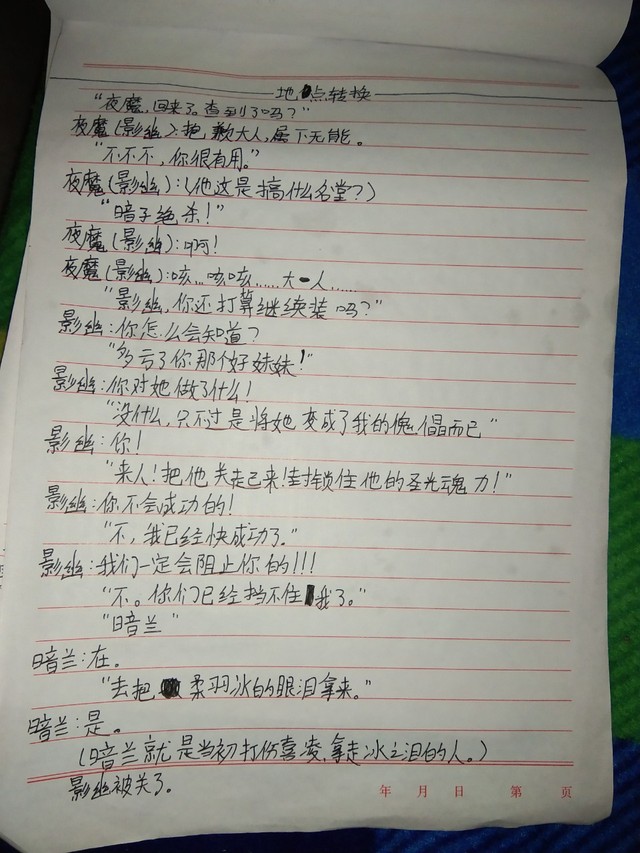 地点转换
“夜魔,回来了。查到了吗?”
夜魔(影幽):抱歉大人,属下无能。
“不不不,你很有用。”
夜魔(影幽):(他这是搞什么名堂?)
“暗子绝杀!”
夜魔(影幽):啊!
夜魔(影幽):咳...咳咳......大人......
“影幽,你还打算继续装吗?”
影幽:你怎么会知道?
“多亏了你那个好妹妹!”
影幽:你对她做了什么!
“没什么,只不过是将她变成了我的傀儡而已”
影幽:你!
“来人!把他关起来!封锁住他的圣光魂力!”
影幽:你不会成功的!
“不,我已经快成功了。”
影幽:我们一定会阻止你的!!!
“不。你们已经挡不住我了。”
“暗兰”
暗兰:在。
“去把柔羽冰的眼泪拿来。”
暗兰:是。
(暗兰就是当初打伤喜凌,拿走冰之泪的人。)
影幽被关了。
年 月 日 第 页